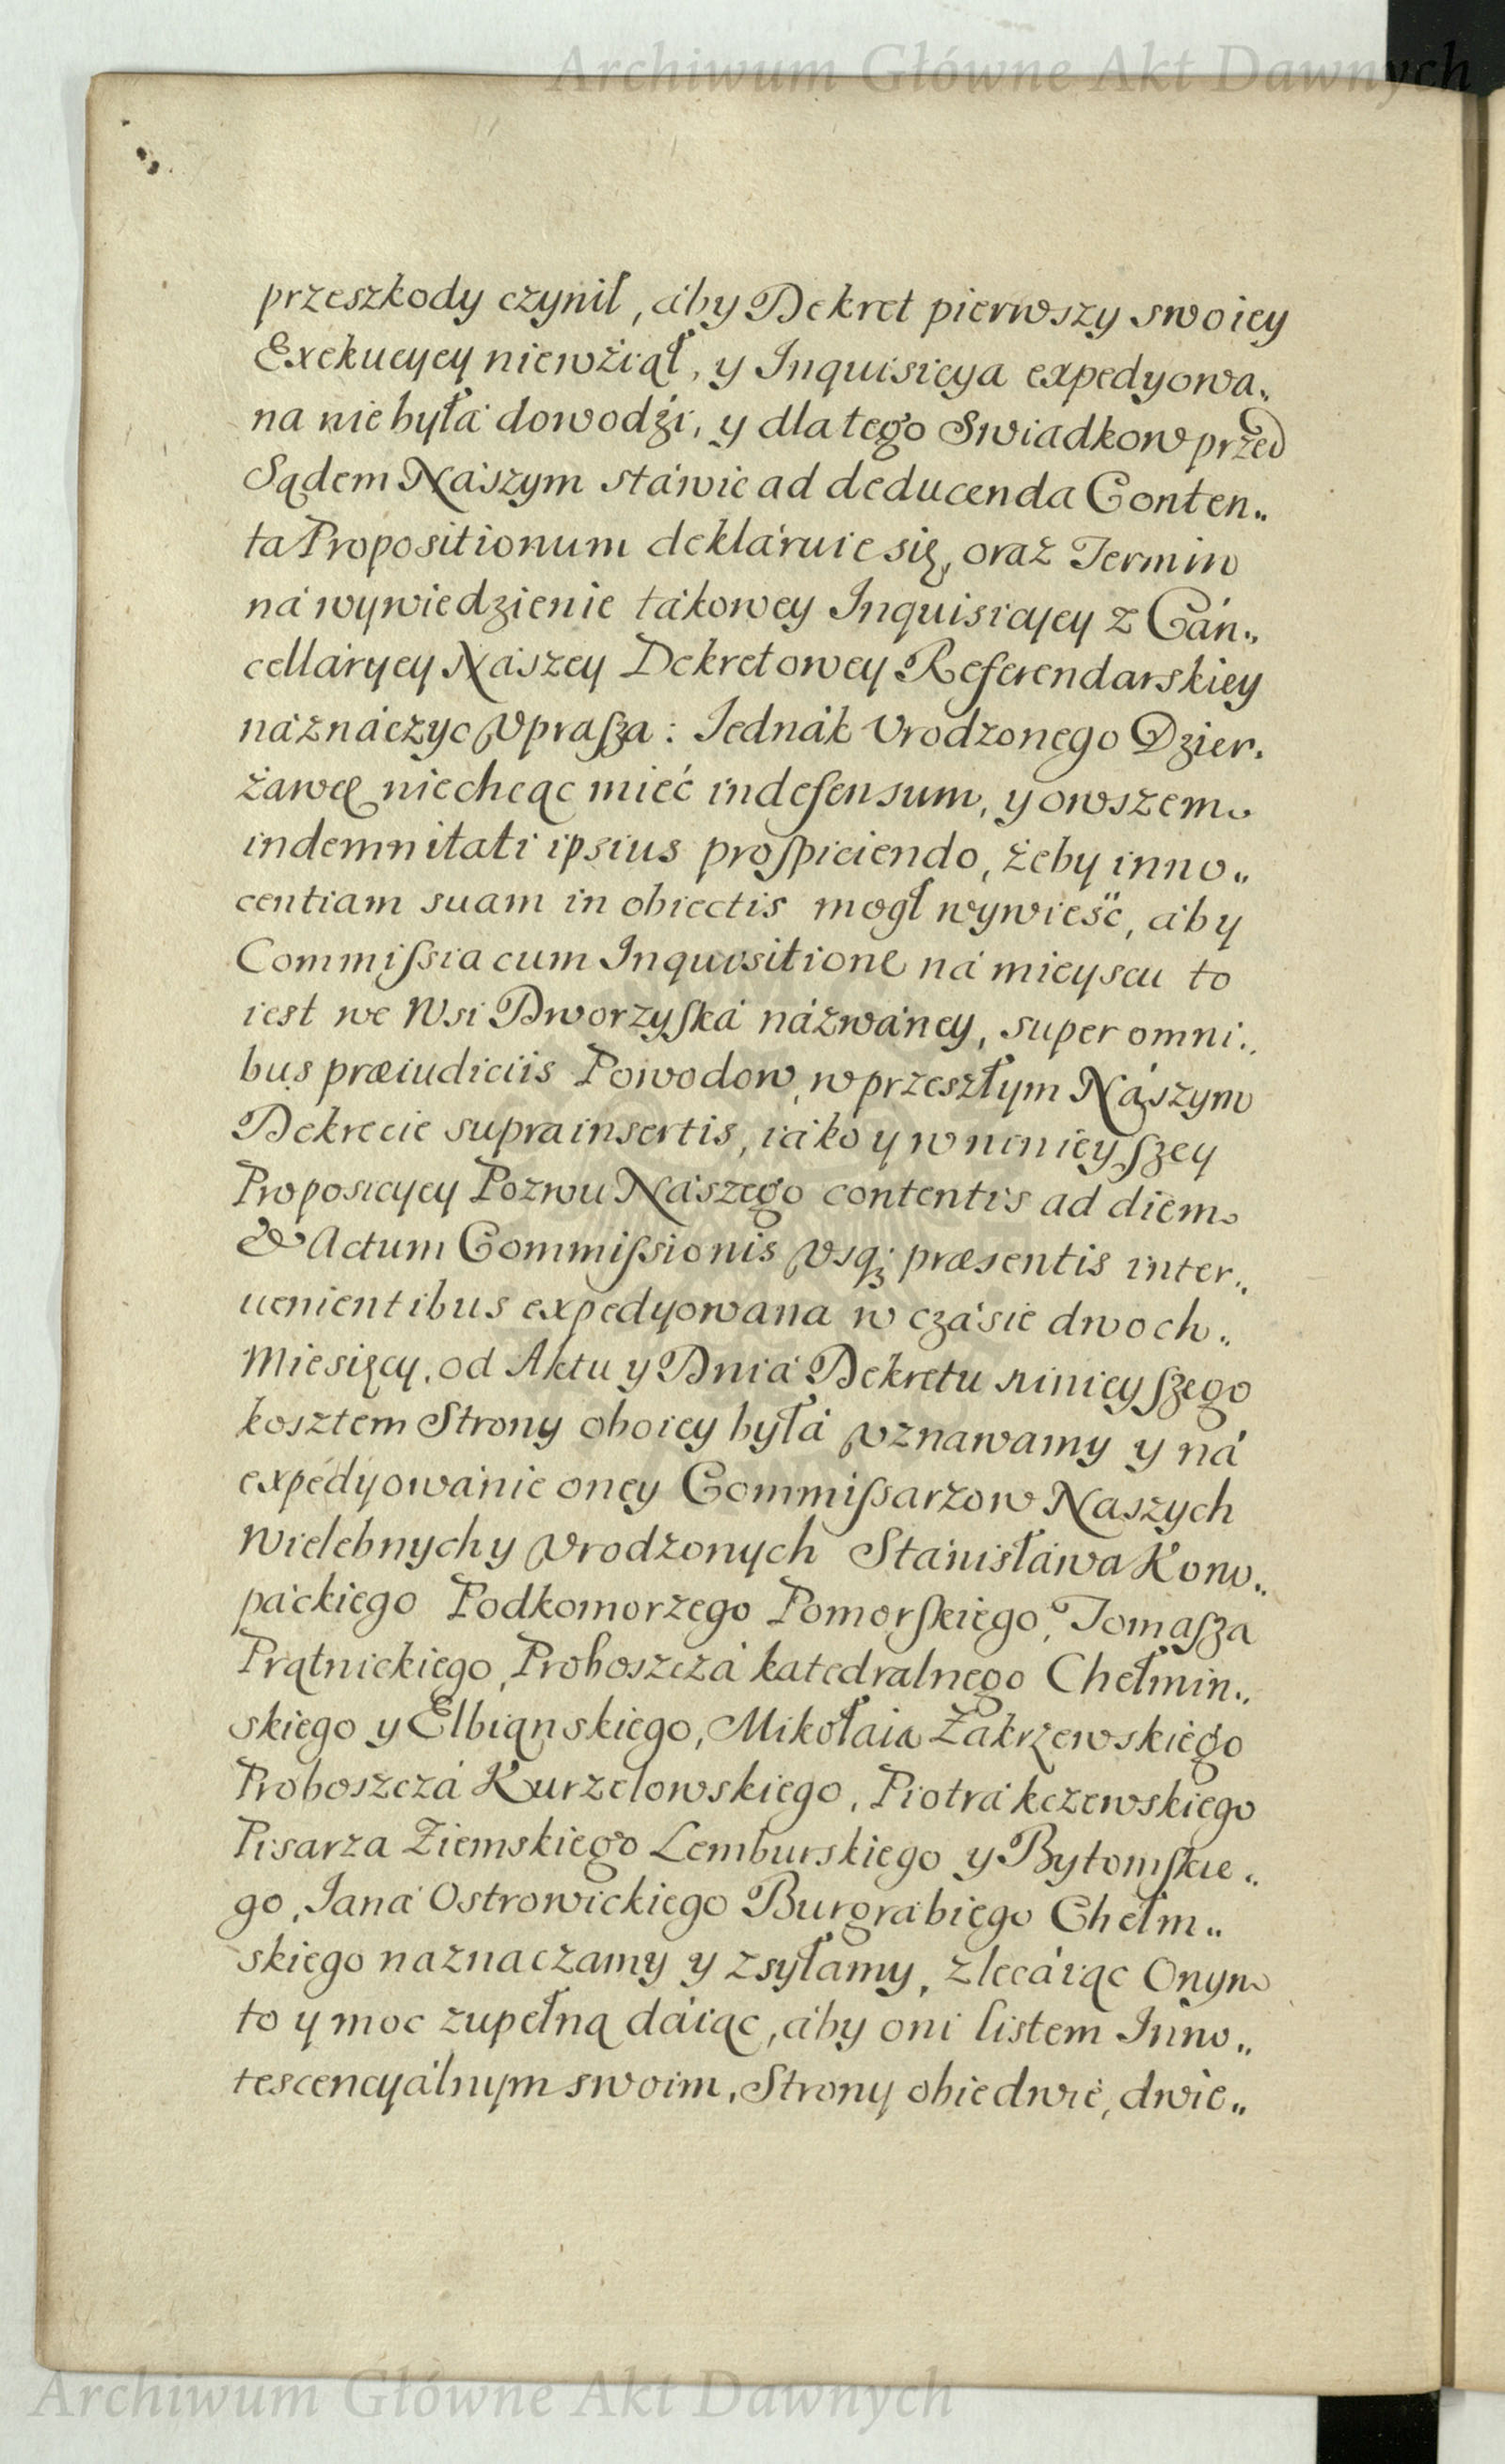 Archiwum Główne Akt Dawnych
przeszkody czynił, áby Dekret pierwszy swoiey
Exekucyey niewźiął, y Inquisicya expedyowa„
na nie była dowodźi, y dla tego Swiadkow przed
Sądem Nászym stáwić ad deducenda Conten„
ta Propositionum dekláruie się, oraz Termin
ná wywiedzienie tákowey Inquisicyey z Cán„
celláryey Nászey Dekretowey Referendarskiey
náznáczyc vprasza: Iednák Vrodzonego Dzier„
żawcę niechcąc mieć indefensum, y owszem
indemnitati ipsius prospiciendo, żeby inno„
centiam suam in obiectis mogł wywieść, áby
Commissia cum Inquisitione ná mieyscu to
iest we Wsi Dworzyská názwáney, super omni„
bus præiudiciis Powodow, w przeszłym Nászym
Dekrecie supra insertis, iáko y w ninieyszey
Proposicyey Pozwu Nászego contentis ad diem
& Actum Commissionis vsq; præsentis inter„
uenientibus expedyowana w czásie dwoch„
Miesięcy, od Aktu y Dniá Dekretu ninieyszego
kosztem Strony oboiey byłá vznawamy y ná
expedyowánie oney Commissarzow Naszych
Wielebnych y Vrodzonych Stánisłáwa Kono„
páckiego Podkomorzego Pomorskiego, Tomasza
Prątnickiego, Proboszczá katedralnego Chełmin„
skiego y Elbiąnskiego, Mikołaia Zakrzewskiego
Proboszczá Kurzelowskiego, Piotrá kczewskiego
Pisarza Ziemskiego Lemburskiego y Bytomskie„
go, Ianá Ostrowickiego Burgrábiego Chełm„
skiego naznaczamy y zsyłamy, zlecáiąc Onym
to y moc zupełną dáiąc, áby oni listem Inno„
tescencyálnym swoim, Strony obiedwie, dwie„
Archiwum Główne Akt Dawnych